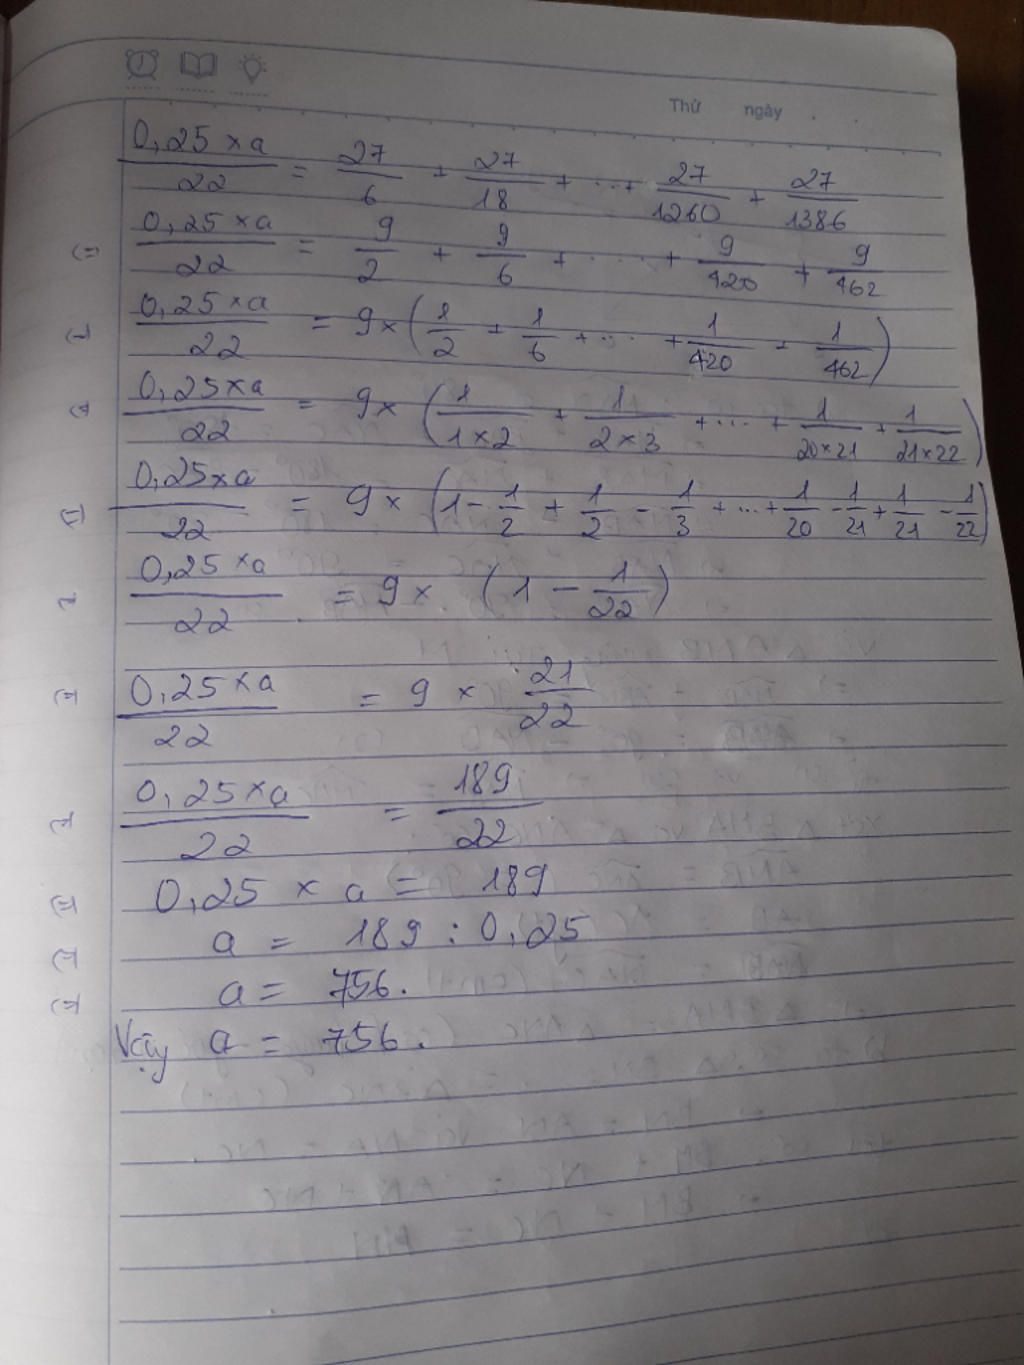 Thứ ngày . .
0,25 × a / 22 = 27/6 + 27/18 + ... + 27/1260 + 27/1386
0,25 × a / 22 = 9/2 + 9/6 + ... + 9/420 + 9/462
0,25 × a / 22 = 9 × (1/2 + 1/6 + ... + 1/420 + 1/462)
0,25 × a / 22 = 9 × (1/1×2 + 1/2×3 + ... + 1/20×21 + 1/21×22)
0,25 × a / 22 = 9 × (1 - 1/2 + 1/2 - 1/3 + ... + 1/20 - 1/21 + 1/21 - 1/22)
0,25 × a / 22 = 9 × (1 - 1/22)
0,25 × a / 22 = 9 × 21/22
0,25 × a / 22 = 189/22
0,25 × a = 189
a = 189 : 0,25
a = 756.
Vậy a = 756.